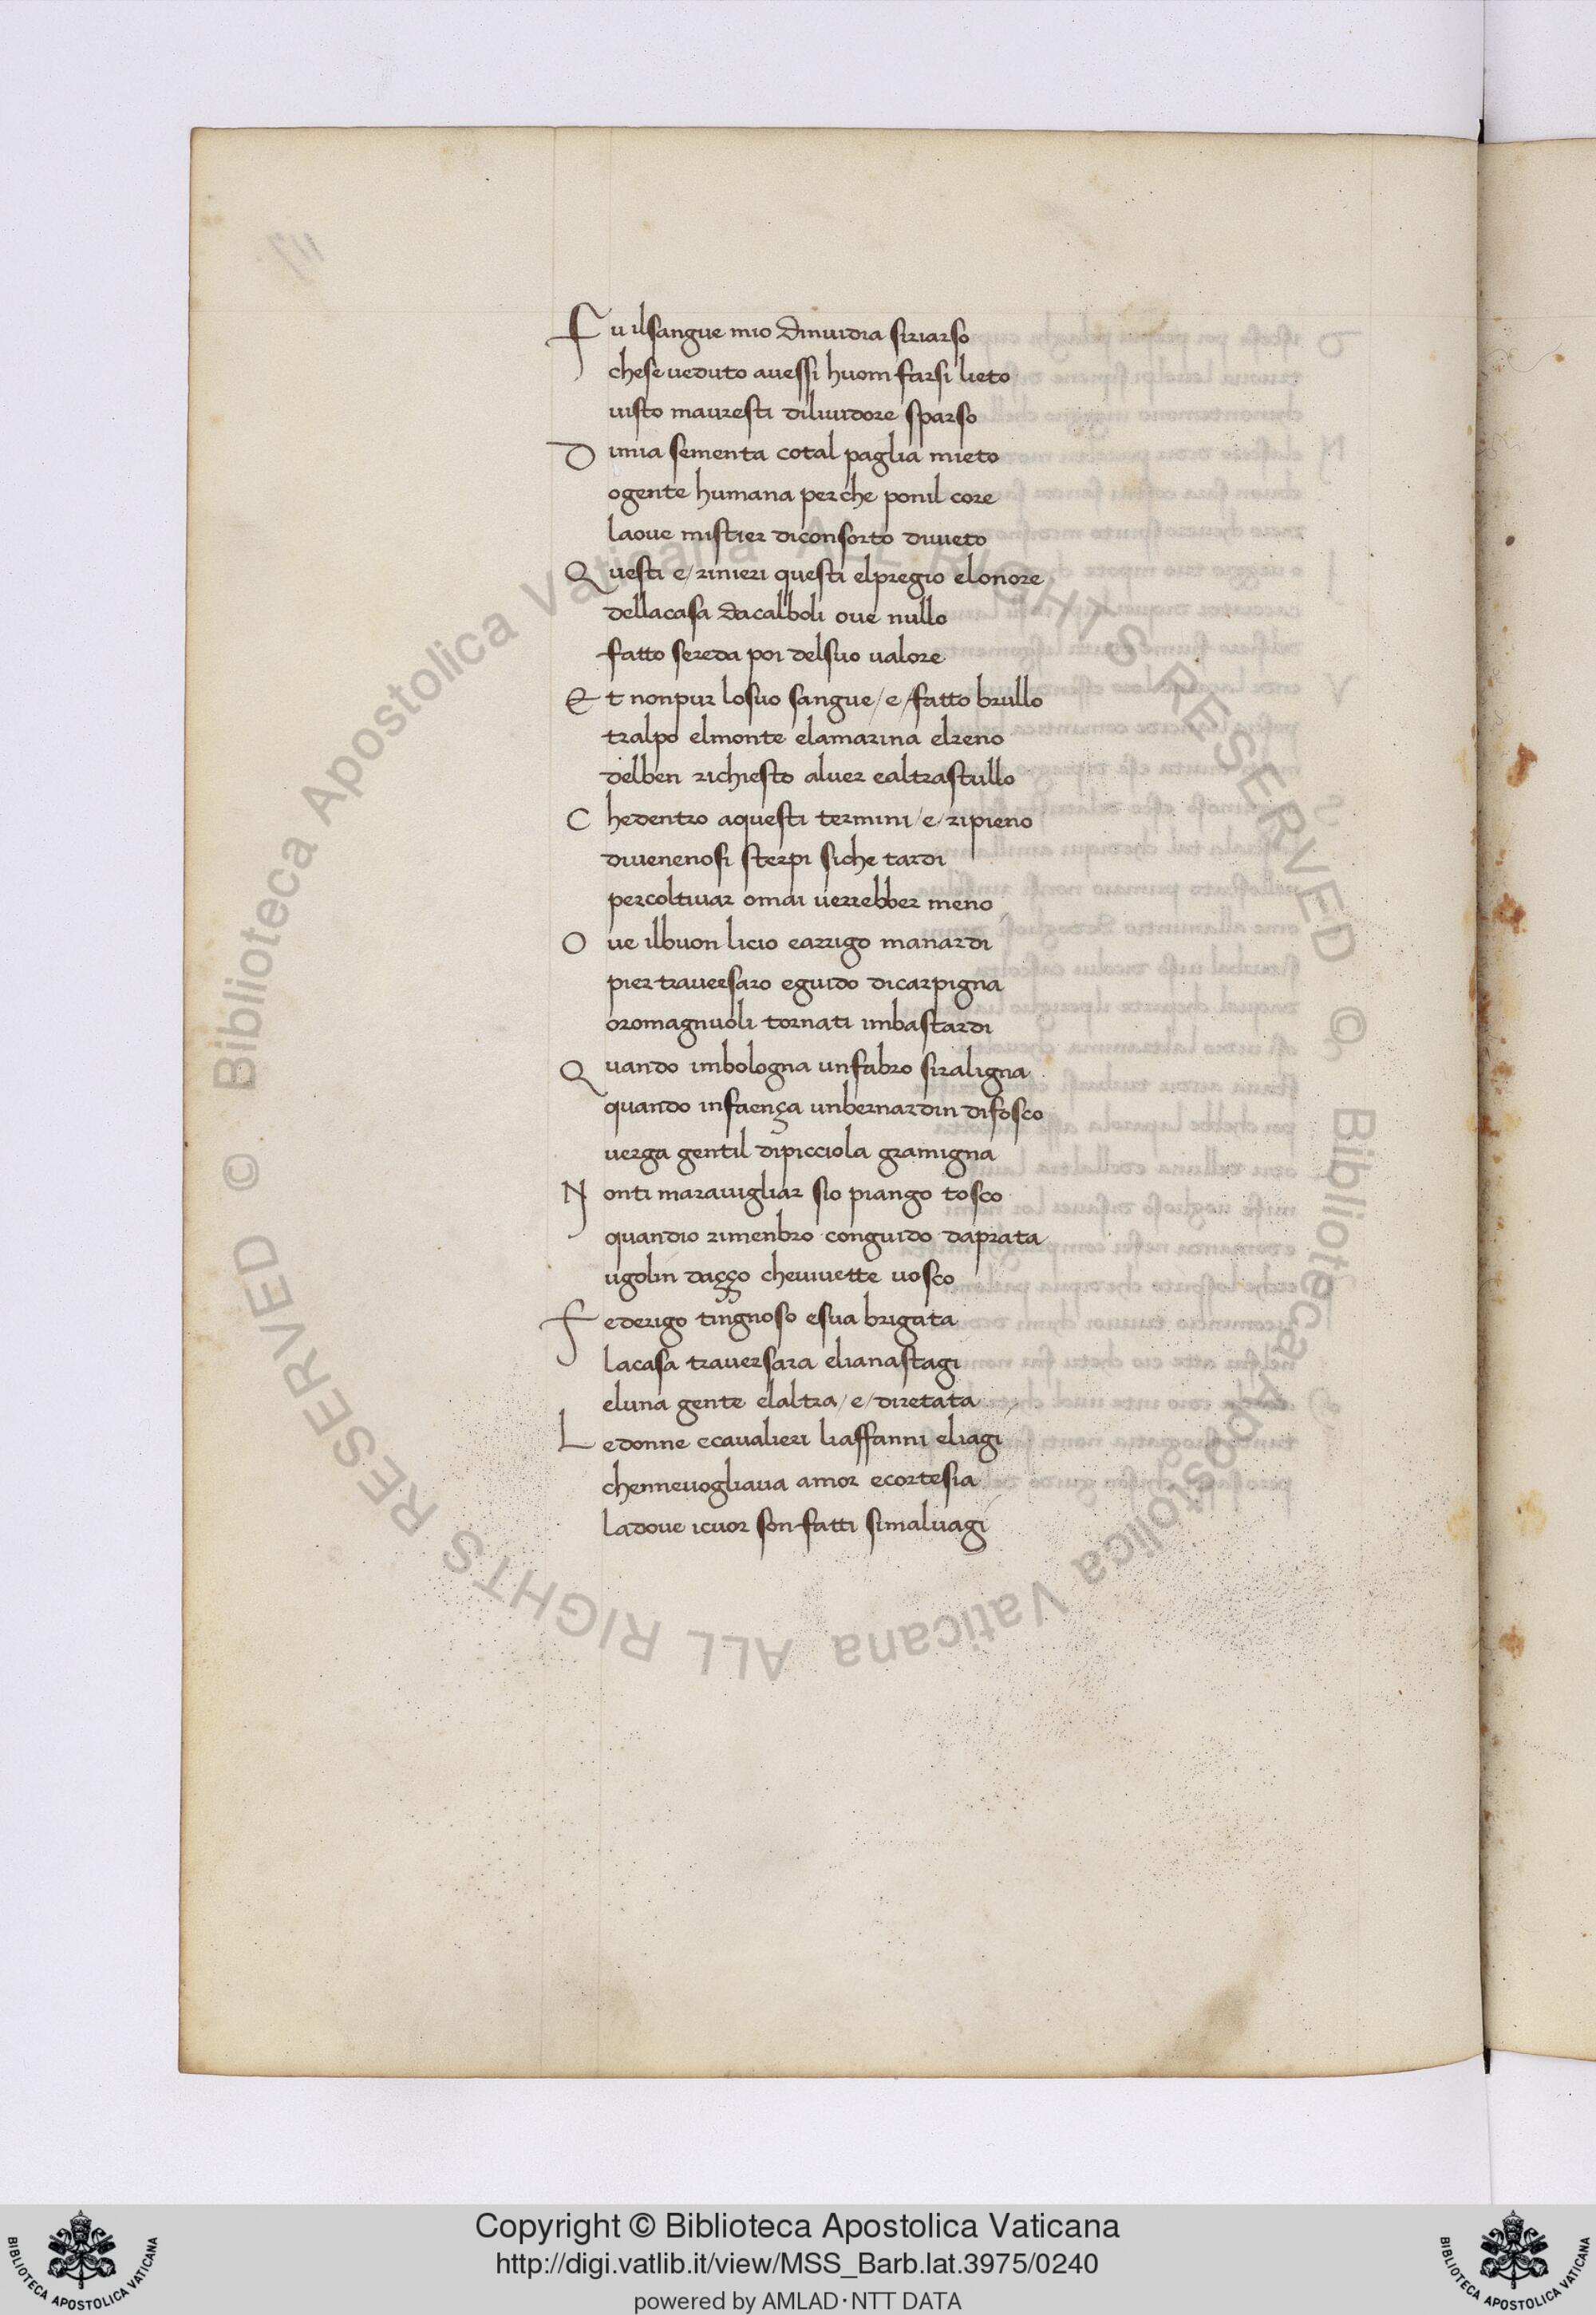 Fu ilsangue mio dinuidia siriarso
chese ueduto auessi huom farsi lieto
uisto mauresti diliuidore sparso
Dimia sementa cotal paglia mieto
ogente humana perche ponil core
laoue mistier diconsorto diuieto
Questi e/ rinieri questi elpregio elonore
dellacasa dacalboli oue nullo
fatto sereda poi delsuo ualore
Et nonpur losuo sangue/ e/ fatto brullo
tralpo elmonte elamarina elreno
delben richiesto aluer ealtrastullo
Chedentro aquesti termini/ e/ ripieno
diuenenosi sterpi siche tardi
percoltiuar omai uerrebber meno
Oue ilbuon licio earrigo manardi
pier trauersaro eguido dicarpigna
oromagnuoli tornati imbastardi
Quando imbologna unfabro siraligna
quando infaença unbernardin difosco
uerga gentil dipicciola gramigna
Nonti marauigliar sio piango tosco
quandio rimenbro conguido daprata
ugolin daçço cheuiuette uosco
Federigo tingnoso esua brigata
lacasa trauersara elianastagi
eluna gente elaltra/ e/ diretata
Ledonne ecaualieri liaffanni eliagi
chenneuogliaua amor ecortesia
ladoue icuor son fatti simaluagi
© Biblioteca Apostolica Vaticana ALL RIGHTS RESERVED © Biblioteca Apostolica Vaticana ALL RIGHTS RESERVED
Copyright © Biblioteca Apostolica Vaticana
http://digi.vatlib.it/view/MSS_Barb.lat.3975/0240
powered by AMLAD·NTT DATA
BIBLIOTECA APOSTOLICA VATICANA
BIBLIOTECA APOSTOLICA VATICANA